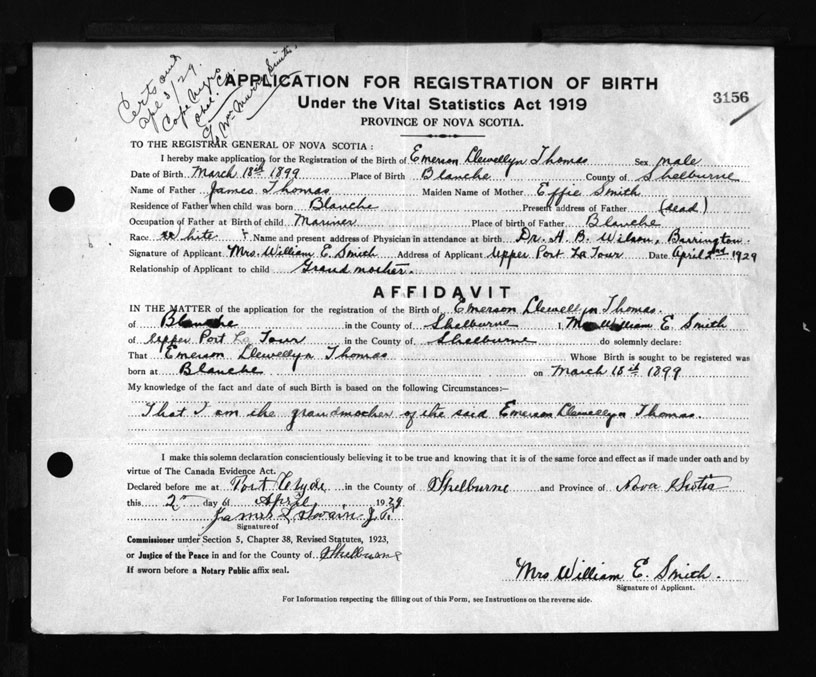 Cert. out
Apl 3/29.
Cape Negro
Shel. Co.
Smith
APPLICATION FOR REGISTRATION OF BIRTH
Under the Vital Statistics Act 1919
3156
PROVINCE OF NOVA SCOTIA.
TO THE REGISTRAR GENERAL OF NOVA SCOTIA :
I hereby make application for the Registration of the Birth of Emerson Llewellyn Thomas Sex male
Date of Birth March 18th 1899 Place of Birth Blanche County of Shelburne
Name of Father James Thomas Maiden Name of Mother Effie Smith
Residence of Father when child was born Blanche Present address of Father (dead)
Occupation of Father at Birth of child Mariner Place of birth of Father Blanche
Race white Name and present address of Physician in attendance at birth Dr. A. B. Wilson, Barrington.
Signature of Applicant Mrs. William E. Smith Address of Applicant Upper Port La Tour Date April 2nd 1929
Relationship of Applicant to child Grandmother.
AFFIDAVIT
IN THE MATTER of the application for the registration of the Birth of Emerson Llewellyn Thomas.
of Blanche in the County of Shelburne I, William E. Smith
of Upper Port La Tour in the County of Shelburne do solemnly declare:
That Emerson Llewellyn Thomas Whose Birth is sought to be registered was
born at Blanche on March 18th 1899
My knowledge of the fact and date of such Birth is based on the following Circumstances:—
That I am the grandmother of the said Emerson Llewellyn Thomas.
I make this solemn declaration conscientiously believing it to be true and knowing that it is of the same force and effect as if made under oath and by
virtue of The Canada Evidence Act.
Declared before me at Port Clyde in the County of Shelburne and Province of Nova Scotia
this 2nd day of April 1929
James L Swain J.P.
Signature of
Commissioner under Section 5, Chapter 38, Revised Statutes, 1923,
or Justice of the Peace in and for the County of Shelburne
If sworn before a Notary Public affix seal.
Mrs William E. Smith.
Signature of Applicant.
For Information respecting the filling out of this Form, see Instructions on the reverse side.